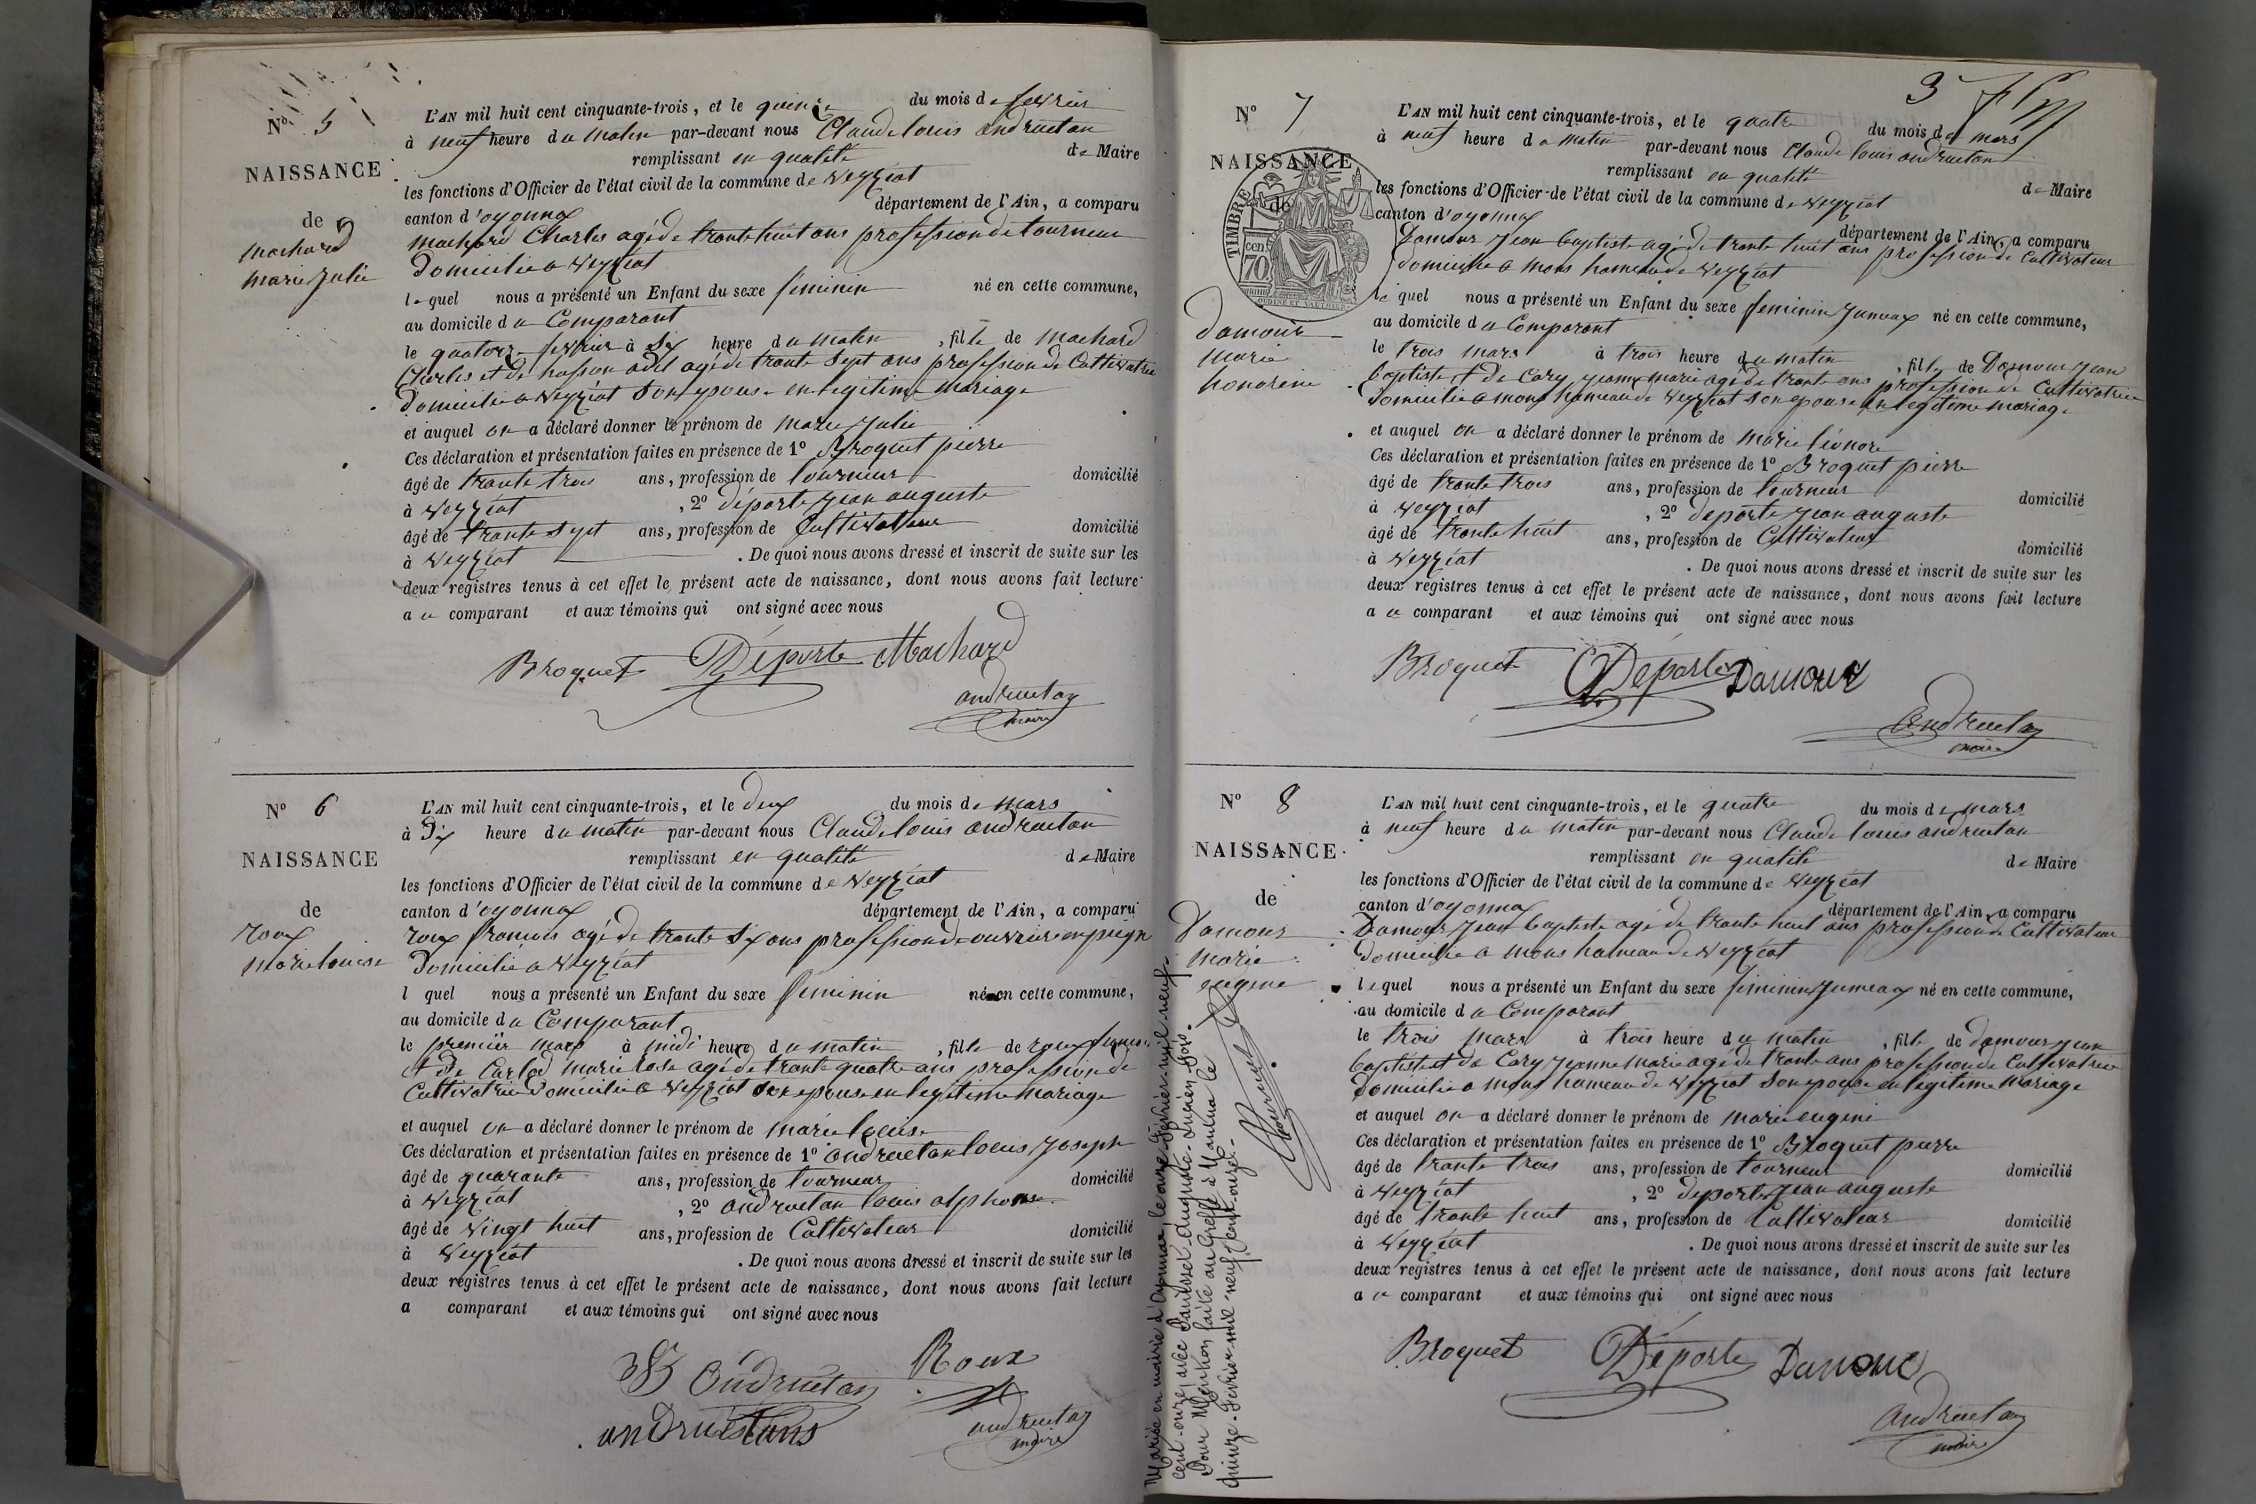 Nº 5
NAISSANCE
de
machard
marie julie
L'AN mil huit cent cinquante-trois, et le quinze du mois de fevrier
à neuf heure du matin par-devant nous Claude louis andruetan
remplissant en qualité de Maire
les fonctions d'Officier de l'état civil de la commune de Veyziat
canton d'oyonnax département de l'Ain, a comparu
machard Charles agé de trente huit ans profession de tourneur
domicilié a Veyziat
lequel nous a présenté un Enfant du sexe feminin né en cette commune,
au domicile du Comparant
le quatorze fevrier à six heure du matin, fille de machard
Charles et de agé de trente sept ans profession de Cultivatrice
domicilié a Veyziat son epouse en legitime mariage
et auquel on a déclaré donner le prénom de marie julie
Ces déclaration et présentation faites en présence de 1º Broquet pierre
âgé de trente trois ans, profession de tourneur domicilié
à Veyziat, 2º déporte jean auguste
âgé de trente sept ans, profession de Cultivateur domicilié
à Veyziat. De quoi nous avons dressé et inscrit de suite sur les
deux registres tenus à cet effet le présent acte de naissance, dont nous avons fait lecture
au comparant et aux témoins qui ont signé avec nous
Broquet Déporte Machard
andruetan
maire
Nº 6
NAISSANCE
de
roux
marie louise
L'AN mil huit cent cinquante-trois, et le deux du mois de mars
à dix heure du matin par-devant nous Claude louis andruetan
remplissant en qualité de Maire
les fonctions d'Officier de l'état civil de la commune de Veyziat
canton d'oyonnax département de l'Ain, a comparu
roux francois agé de trente six ans profession de ouvrier en peigne
domicilié a Veyziat
l quel nous a présenté un Enfant du sexe feminin né en cette commune,
au domicile du Comparant
le premier mars à midi heure du matin, fille de roux
et de marie agé de trente quatre ans profession de
Cultivatrice domicilié a Veyziat son epouse en legitime mariage
et auquel on a déclaré donner le prénom de marie louise
Ces déclaration et présentation faites en présence de 1º andruetan louis joseph
âgé de quarante ans, profession de tourneur domicilié
à Veyziat, 2º andruetan louis alphonse
âgé de vingt huit ans, profession de Cultivateur domicilié
à Veyziat. De quoi nous avons dressé et inscrit de suite sur les
deux registres tenus à cet effet le présent acte de naissance, dont nous avons fait lecture
a comparant et aux témoins qui ont signé avec nous
Andruetan Roux
andruetans
andruetan
maire
3
Nº 7
NAISSANCE
de
TIMBRE
70 cen
damour
marie
honorine
L'AN mil huit cent cinquante-trois, et le quatre du mois de mars
à neuf heure du matin par-devant nous Claude louis andruetan
remplissant en qualité de Maire
les fonctions d'Officier de l'état civil de la commune de Veyziat
canton d'oyonnax département de l'Ain, a comparu
Damour jean baptiste agé de trente huit ans profession de Cultivateur
domicilié a mons hameau de Veyziat
lequel nous a présenté un Enfant du sexe feminin jumeaux né en cette commune,
au domicile du Comparant
le trois mars à trois heure du matin, fille de Damour jean
baptiste et de Cary jeanne marie agé de trente ans profession de Cultivatrice
domicilié a mons hameau de Veyziat son epouse en legitime mariage
et auquel on a déclaré donner le prénom de marie léonore
Ces déclaration et présentation faites en présence de 1º Broquet pierre
âgé de trente trois ans, profession de tourneur domicilié
à Veyziat, 2º deporte jean auguste
âgé de trente huit ans, profession de Cultivateur domicilié
à Veyziat. De quoi nous avons dressé et inscrit de suite sur les
deux registres tenus à cet effet le présent acte de naissance, dont nous avons fait lecture
au comparant et aux témoins qui ont signé avec nous
Broquet Déporte Damour
Andruetan
maire
Nº 8
NAISSANCE
de
Damour
marie
eugenie
L'AN mil huit cent cinquante-trois, et le quatre du mois de mars
à neuf heure du matin par-devant nous Claude louis andruetan
remplissant en qualité de Maire
les fonctions d'Officier de l'état civil de la commune de Veyziat
canton d'oyonnax département de l'Ain, a comparu
Damour jean baptiste agé de trente huit ans profession de Cultivateur
domicilié a mons hameau de Veyziat
lequel nous a présenté un Enfant du sexe feminin jumeaux né en cette commune,
au domicile du Comparant
le trois mars à trois heure du matin, fille de damour jean
baptiste et de Cary jeanne marie agé de trente ans profession de Cultivatrice
domicilié a mons hameau de Veyziat son epouse en legitime mariage
et auquel on a déclaré donner le prénom de marie eugenie
Ces déclaration et présentation faites en présence de 1º Broquet pierre
âgé de trente trois ans, profession de tourneur domicilié
à Veyziat, 2º deporte jean auguste
âgé de trente huit ans, profession de Cultivateur domicilié
à Veyziat. De quoi nous avons dressé et inscrit de suite sur les
deux registres tenus à cet effet le présent acte de naissance, dont nous avons fait lecture
au comparant et aux témoins qui ont signé avec nous
Broquet Déporte Damour
andruetan
maire
Mariée en mairie d'Oyonnax, le onze Février mil neuf-
cent-onze, avec Auguste-Lucien-
Pour Mention faite au Greffe à Nantua le
quinze-Février mil-neuf-cent-onze.-